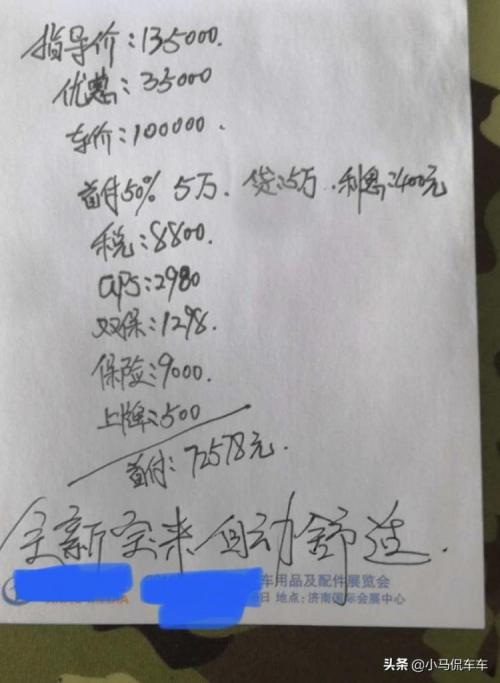 指导价:135000.
优惠:35000
车价:100000.
首付50% 5万. 贷:5万. 利息:400元
税:8800.
GPS:2980
双保:1298.
保险:9000.
上牌:500
首付:72578元.
全新宝来自动舒适.
车用品及配件展览会
日 地点:济南国际会展中心
头条 @小马侃车车